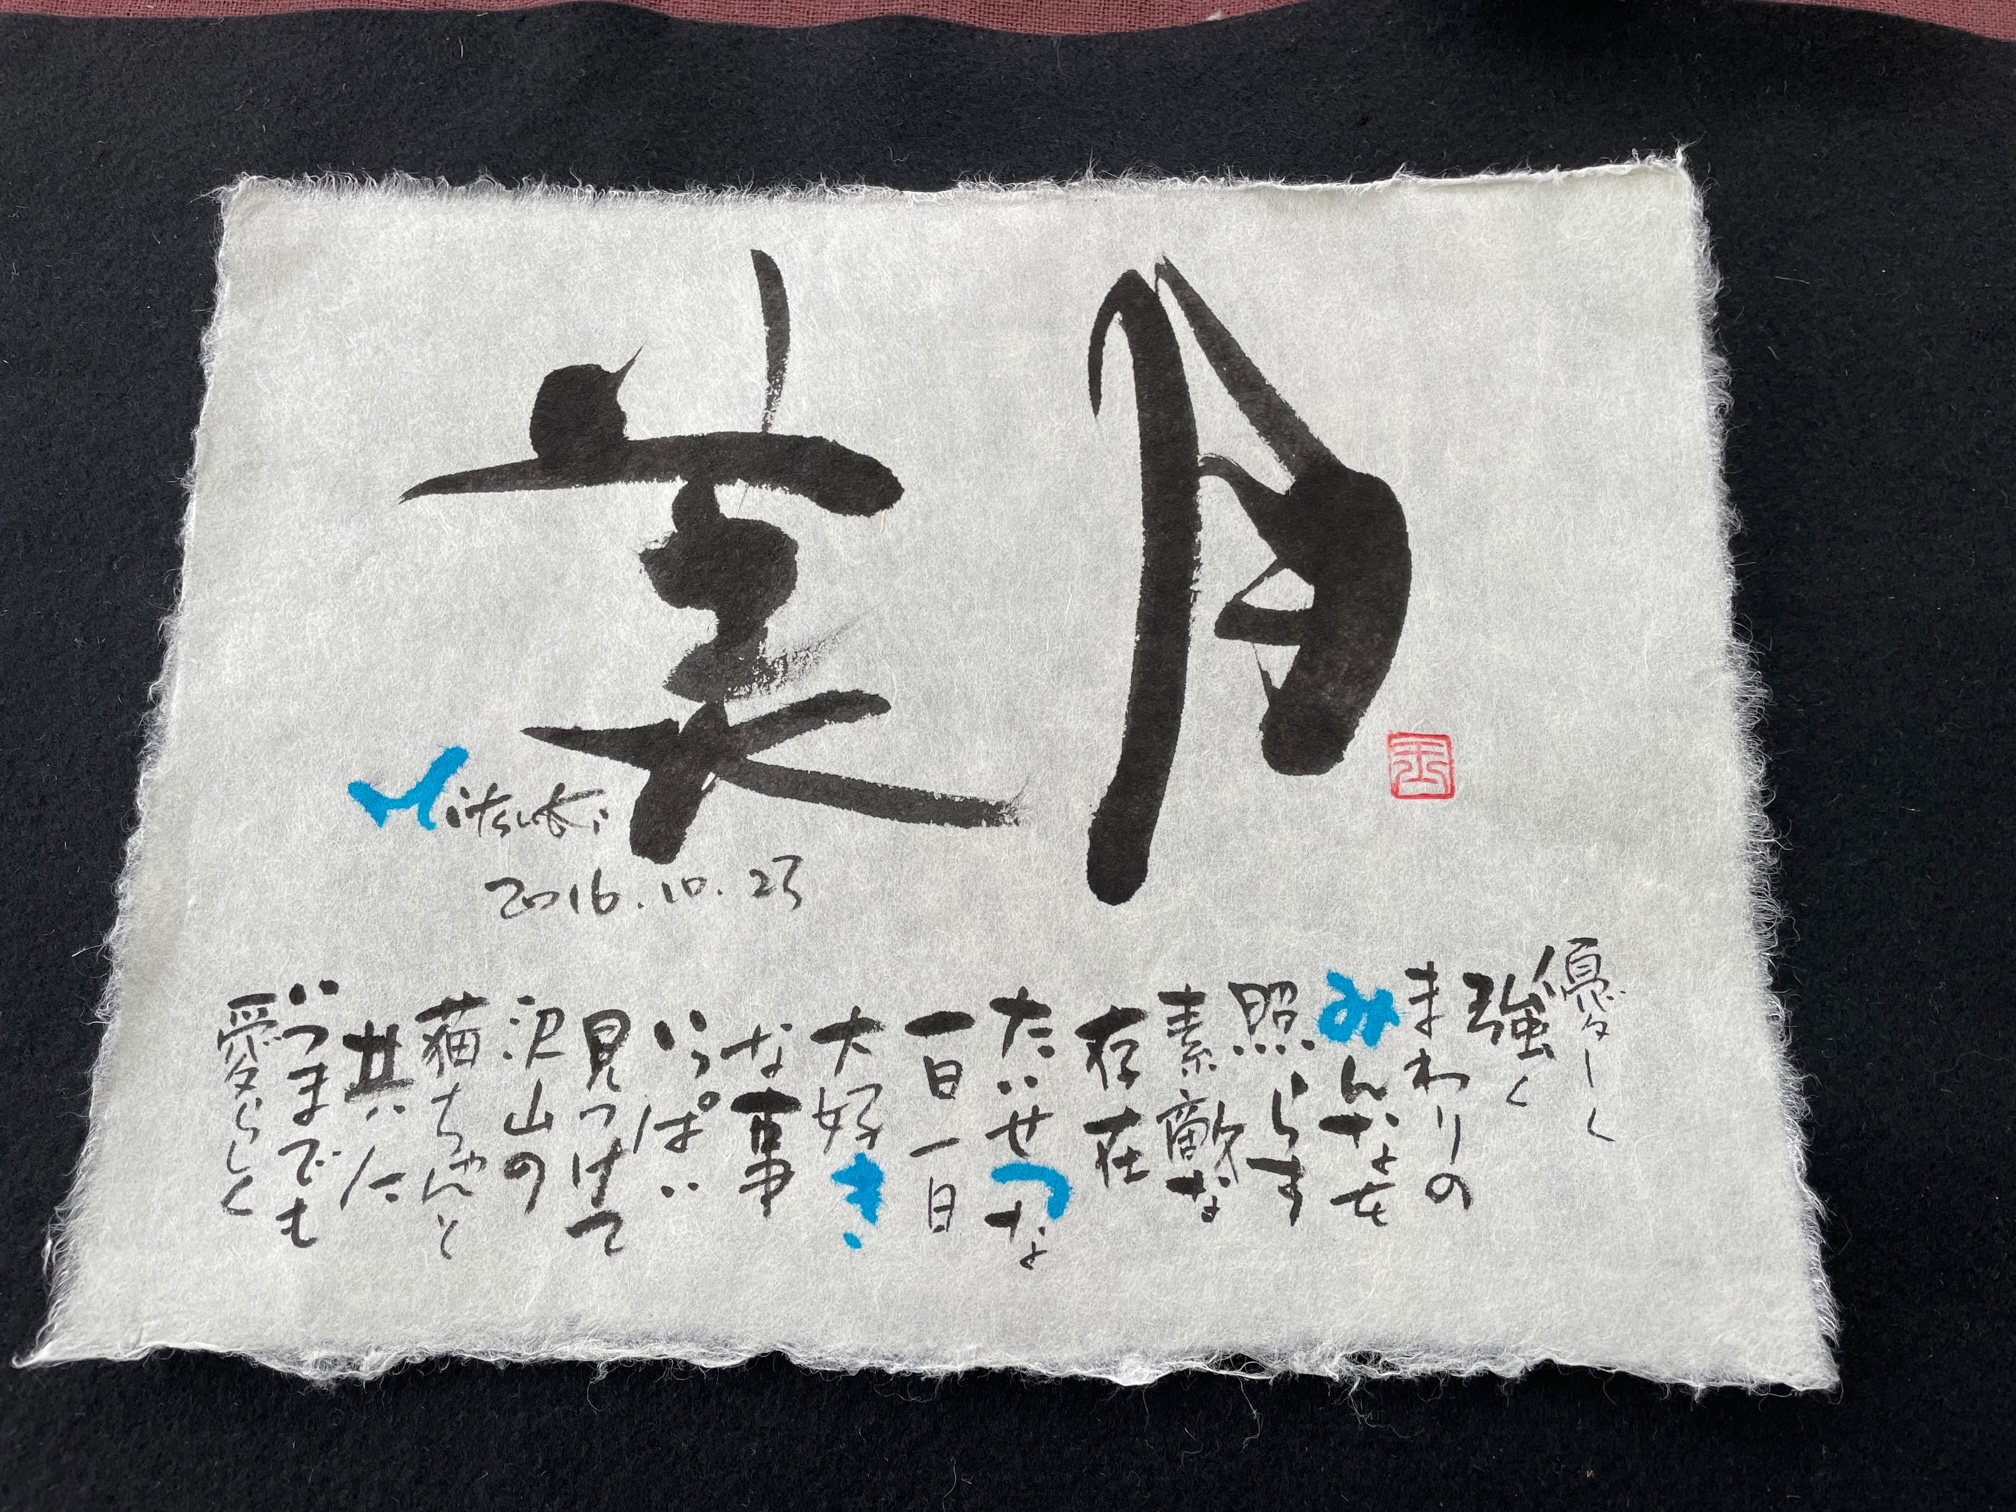 実月
Mitsuki
2016.10.23
優しく
強く
まわりの
みんなを
照らす
素敵な
存在
たいせつな
一日一日
大好き
な事
いっぱい
見つけて
沢山の
猫ちゃんと
共に
いつまでも
愛らしく